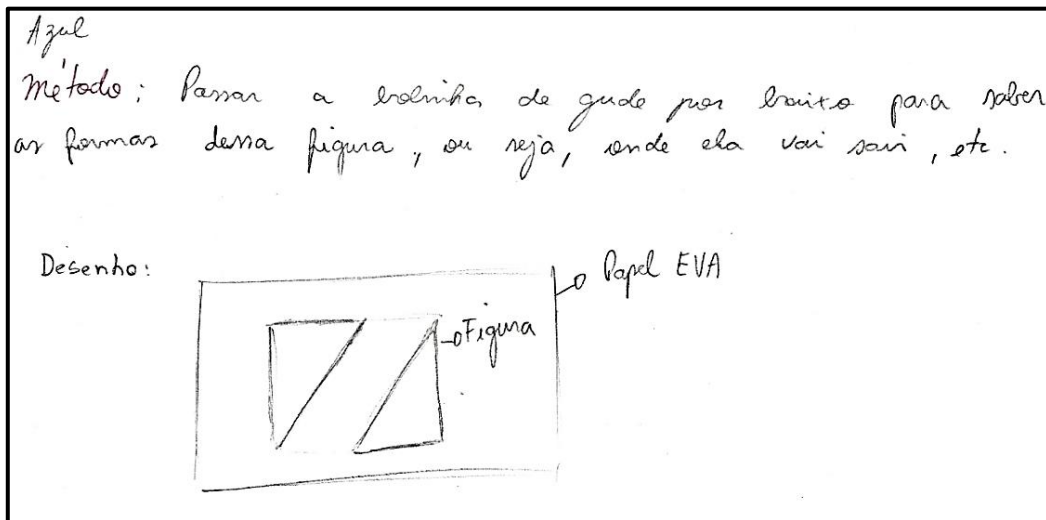 Azul
Método: Passar a bolinha de gude por baixo para saber
as formas dessa figura, ou seja, onde ela vai sair, etc.
Desenho:
Papel EVA
Figura